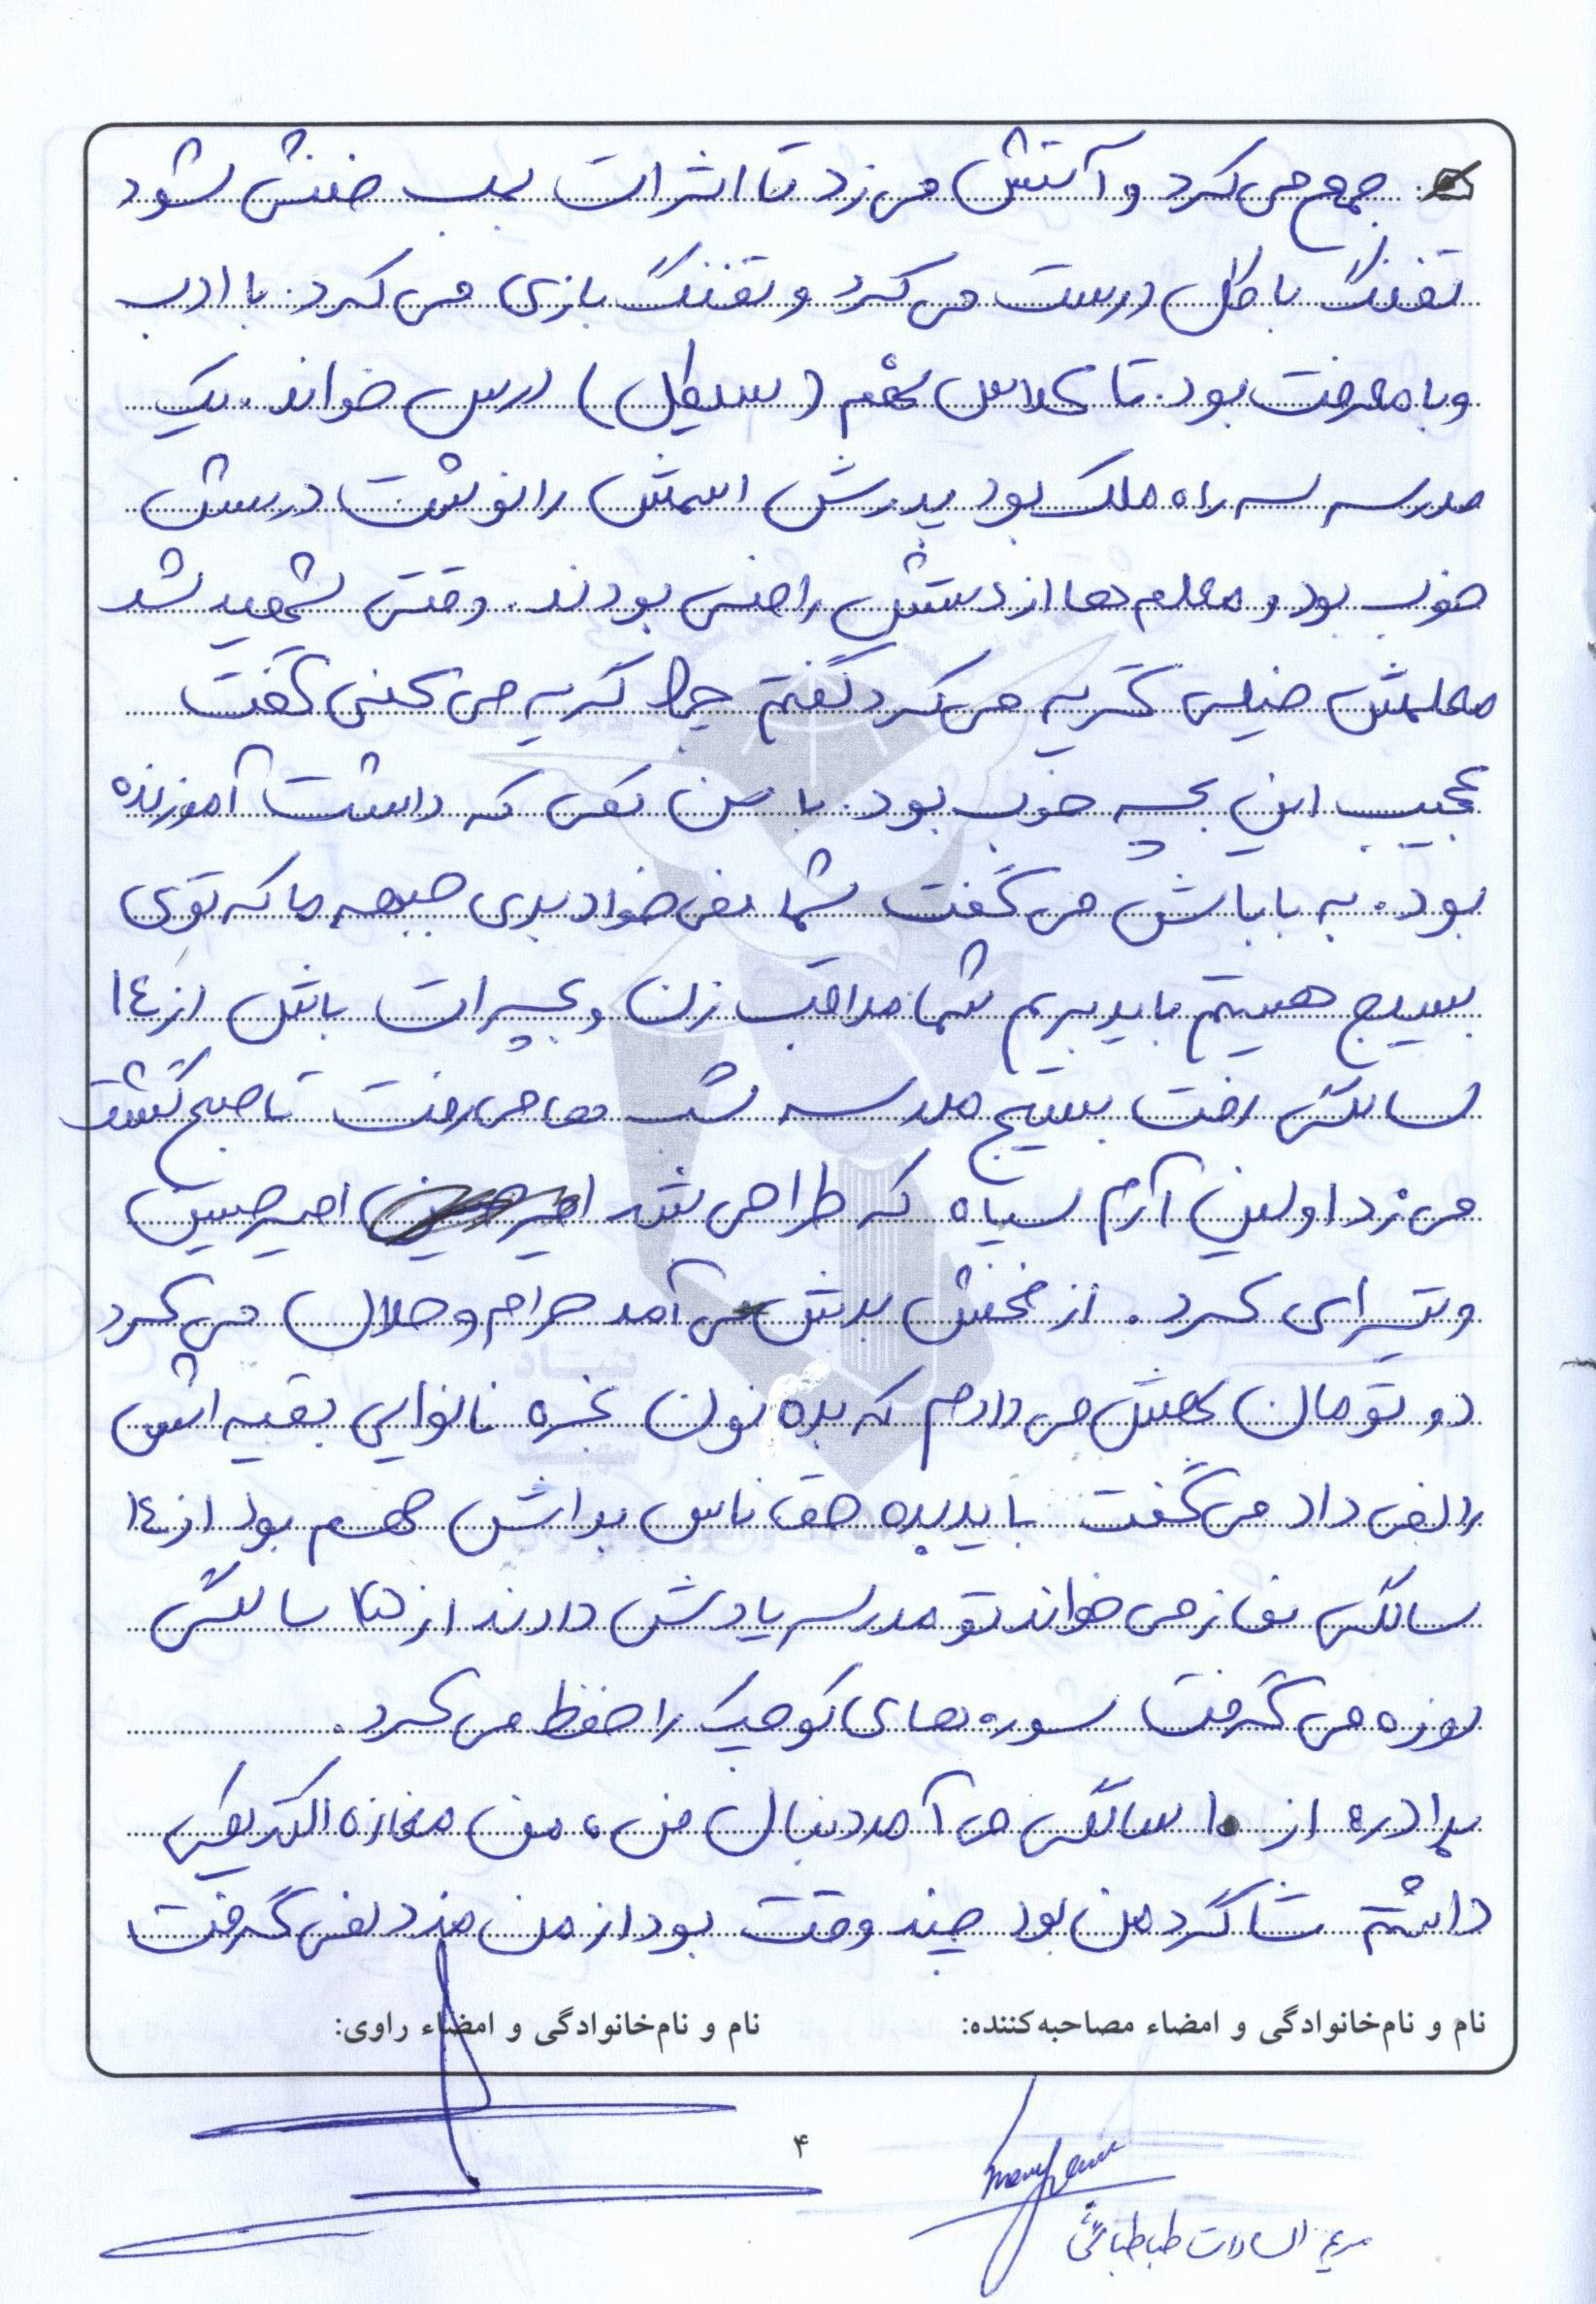 جمع می کرد و آتش می زد تا اثرات بمب خنثی شود
تفنگ با گل درست می کرد و تفنگ بازی می کرد. با ادب
و با معرفت بود. تا کلاس نهم (سیکل) درس خواند. یک
مدرسه سه راه ملک بود پدرش اسمش را نوشت درسش
خوب بود و معلم ها از دستش راضی بودند. وقتی شهید شد
معلمش خیلی گریه می کرد گفتم چرا گریه می کنی گفت
عجیب این بچه خوب بود. با سن کمی که داشت آموزنده
بود. به باباش می گفت شما نمی خواد بری جبهه ما که توی
بسیج هستیم باید بریم شما مراقب زن و بچه ات باش از ۱٤
سالگی رفت بسیج مدرسه شب ها می رفت تا صبح گشت
می زد اولین آرم سپاه که طراحی شد امیرحسین
ویترای کرد. از فحش بدش می آمد حرام و حلال می کرد
دو تومان بهش می دادم که بده نون بخره نانوایی بقیه اش
را نمی داد می گفت باید بده حق ناس براش مهم بود از ۱٤
سالگی نماز می خواند تو مدرسه یادش دادند از سالگی
روزه می گرفت سوره های کوچک را حفظ می کرد.
برادره از ۱۰ سالگی می آمد دنبال من، من مغازه الکتریکی
داشتم شاگرد من بود چند وقت بود از من مزد نمی گرفت
نام و نام‌خانوادگی و امضاء مصاحبه‌کننده: نام و نام‌خانوادگی و امضاء راوی:
۴
مریم السادات طباطبائی